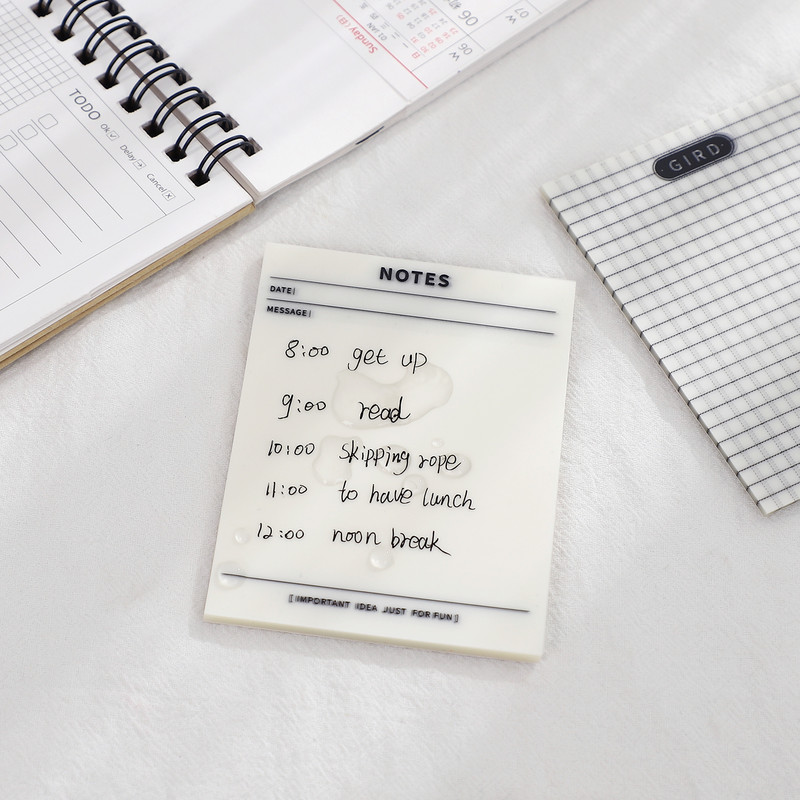 TODO
Ok
Delay
Cancel
Sunday (日)
03 JAN
06
W
06
W
07
GIRD
NOTES
DATE|
MESSAGE|
8:00 get up
9:00 read
10:00 skipping rope
11:00 to have lunch
12:00 noon break
[ IMPORTANT IDEA JUST FOR FUN ]